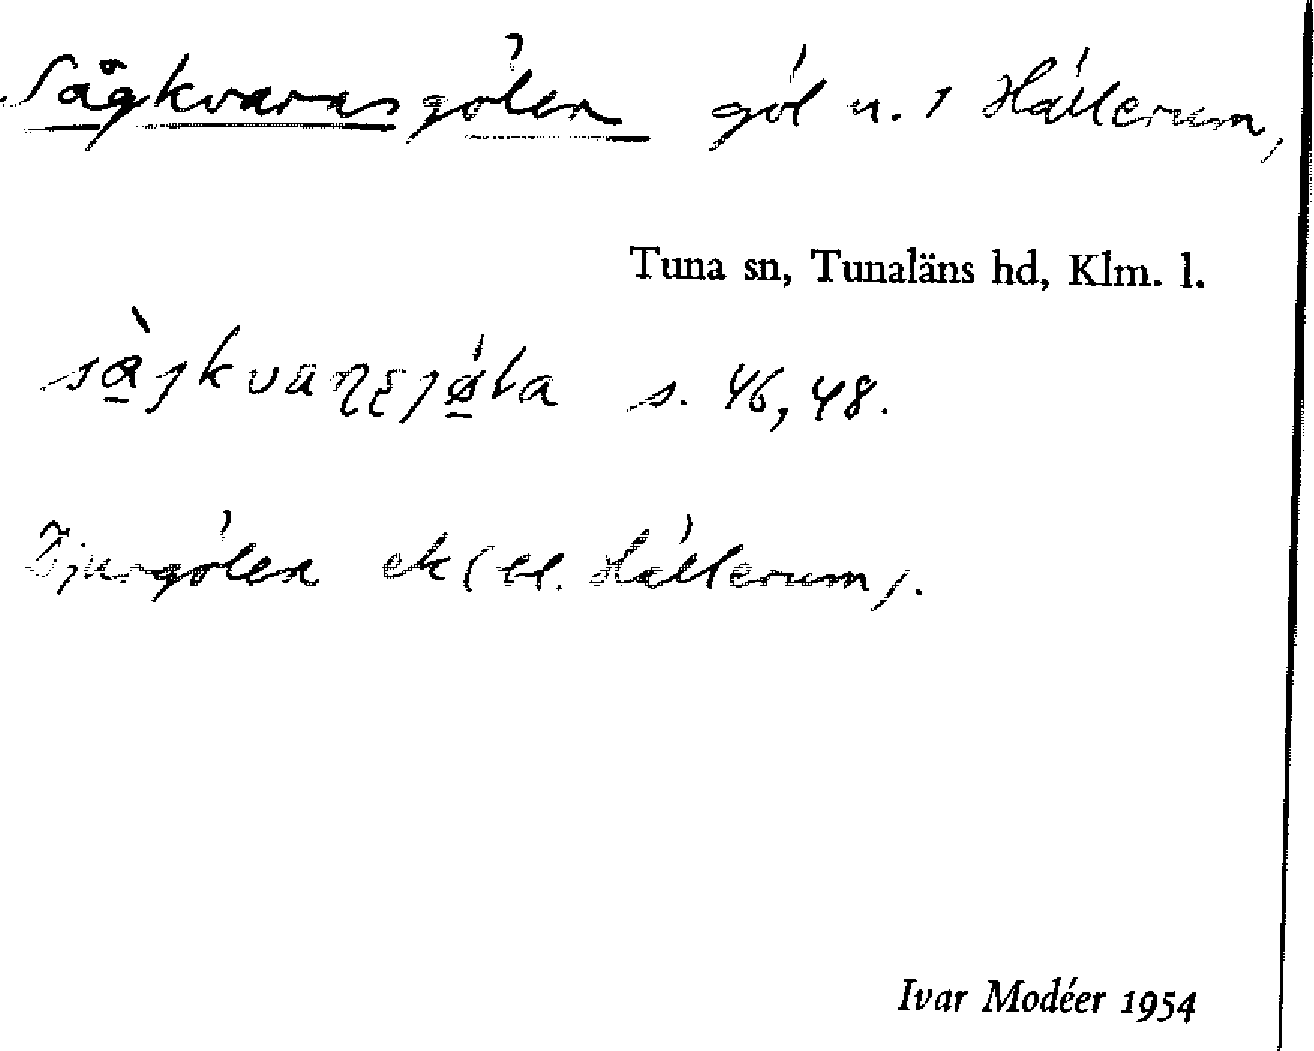 Sågkvarnsgölen göl u. 1 Hällerum,
Tuna sn, Tunaläns hd, Klm. l.
s. 46, 48.
Djurgölen ek (bl. Hällerum).
Ivar Modéer 1954